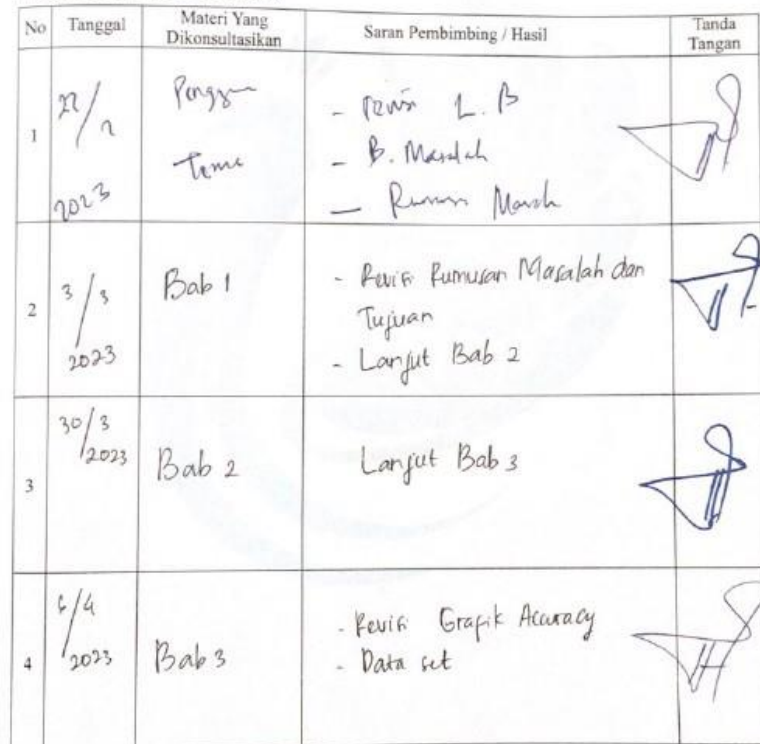 No Tanggal Materi Yang Dikonsultasikan Saran Pembimbing / Hasil Tanda Tangan
1
2023
- L. B
- B. Masalah
2
3/3
2023
Bab 1
- Revisi Rumusan Masalah dan
Tujuan
- Lanjut Bab 2
3
30/3
2023
Bab 2
Lanjut Bab 3
4
6/4
2023
Bab 3
- Revisi Grafik Accuracy
- Data set